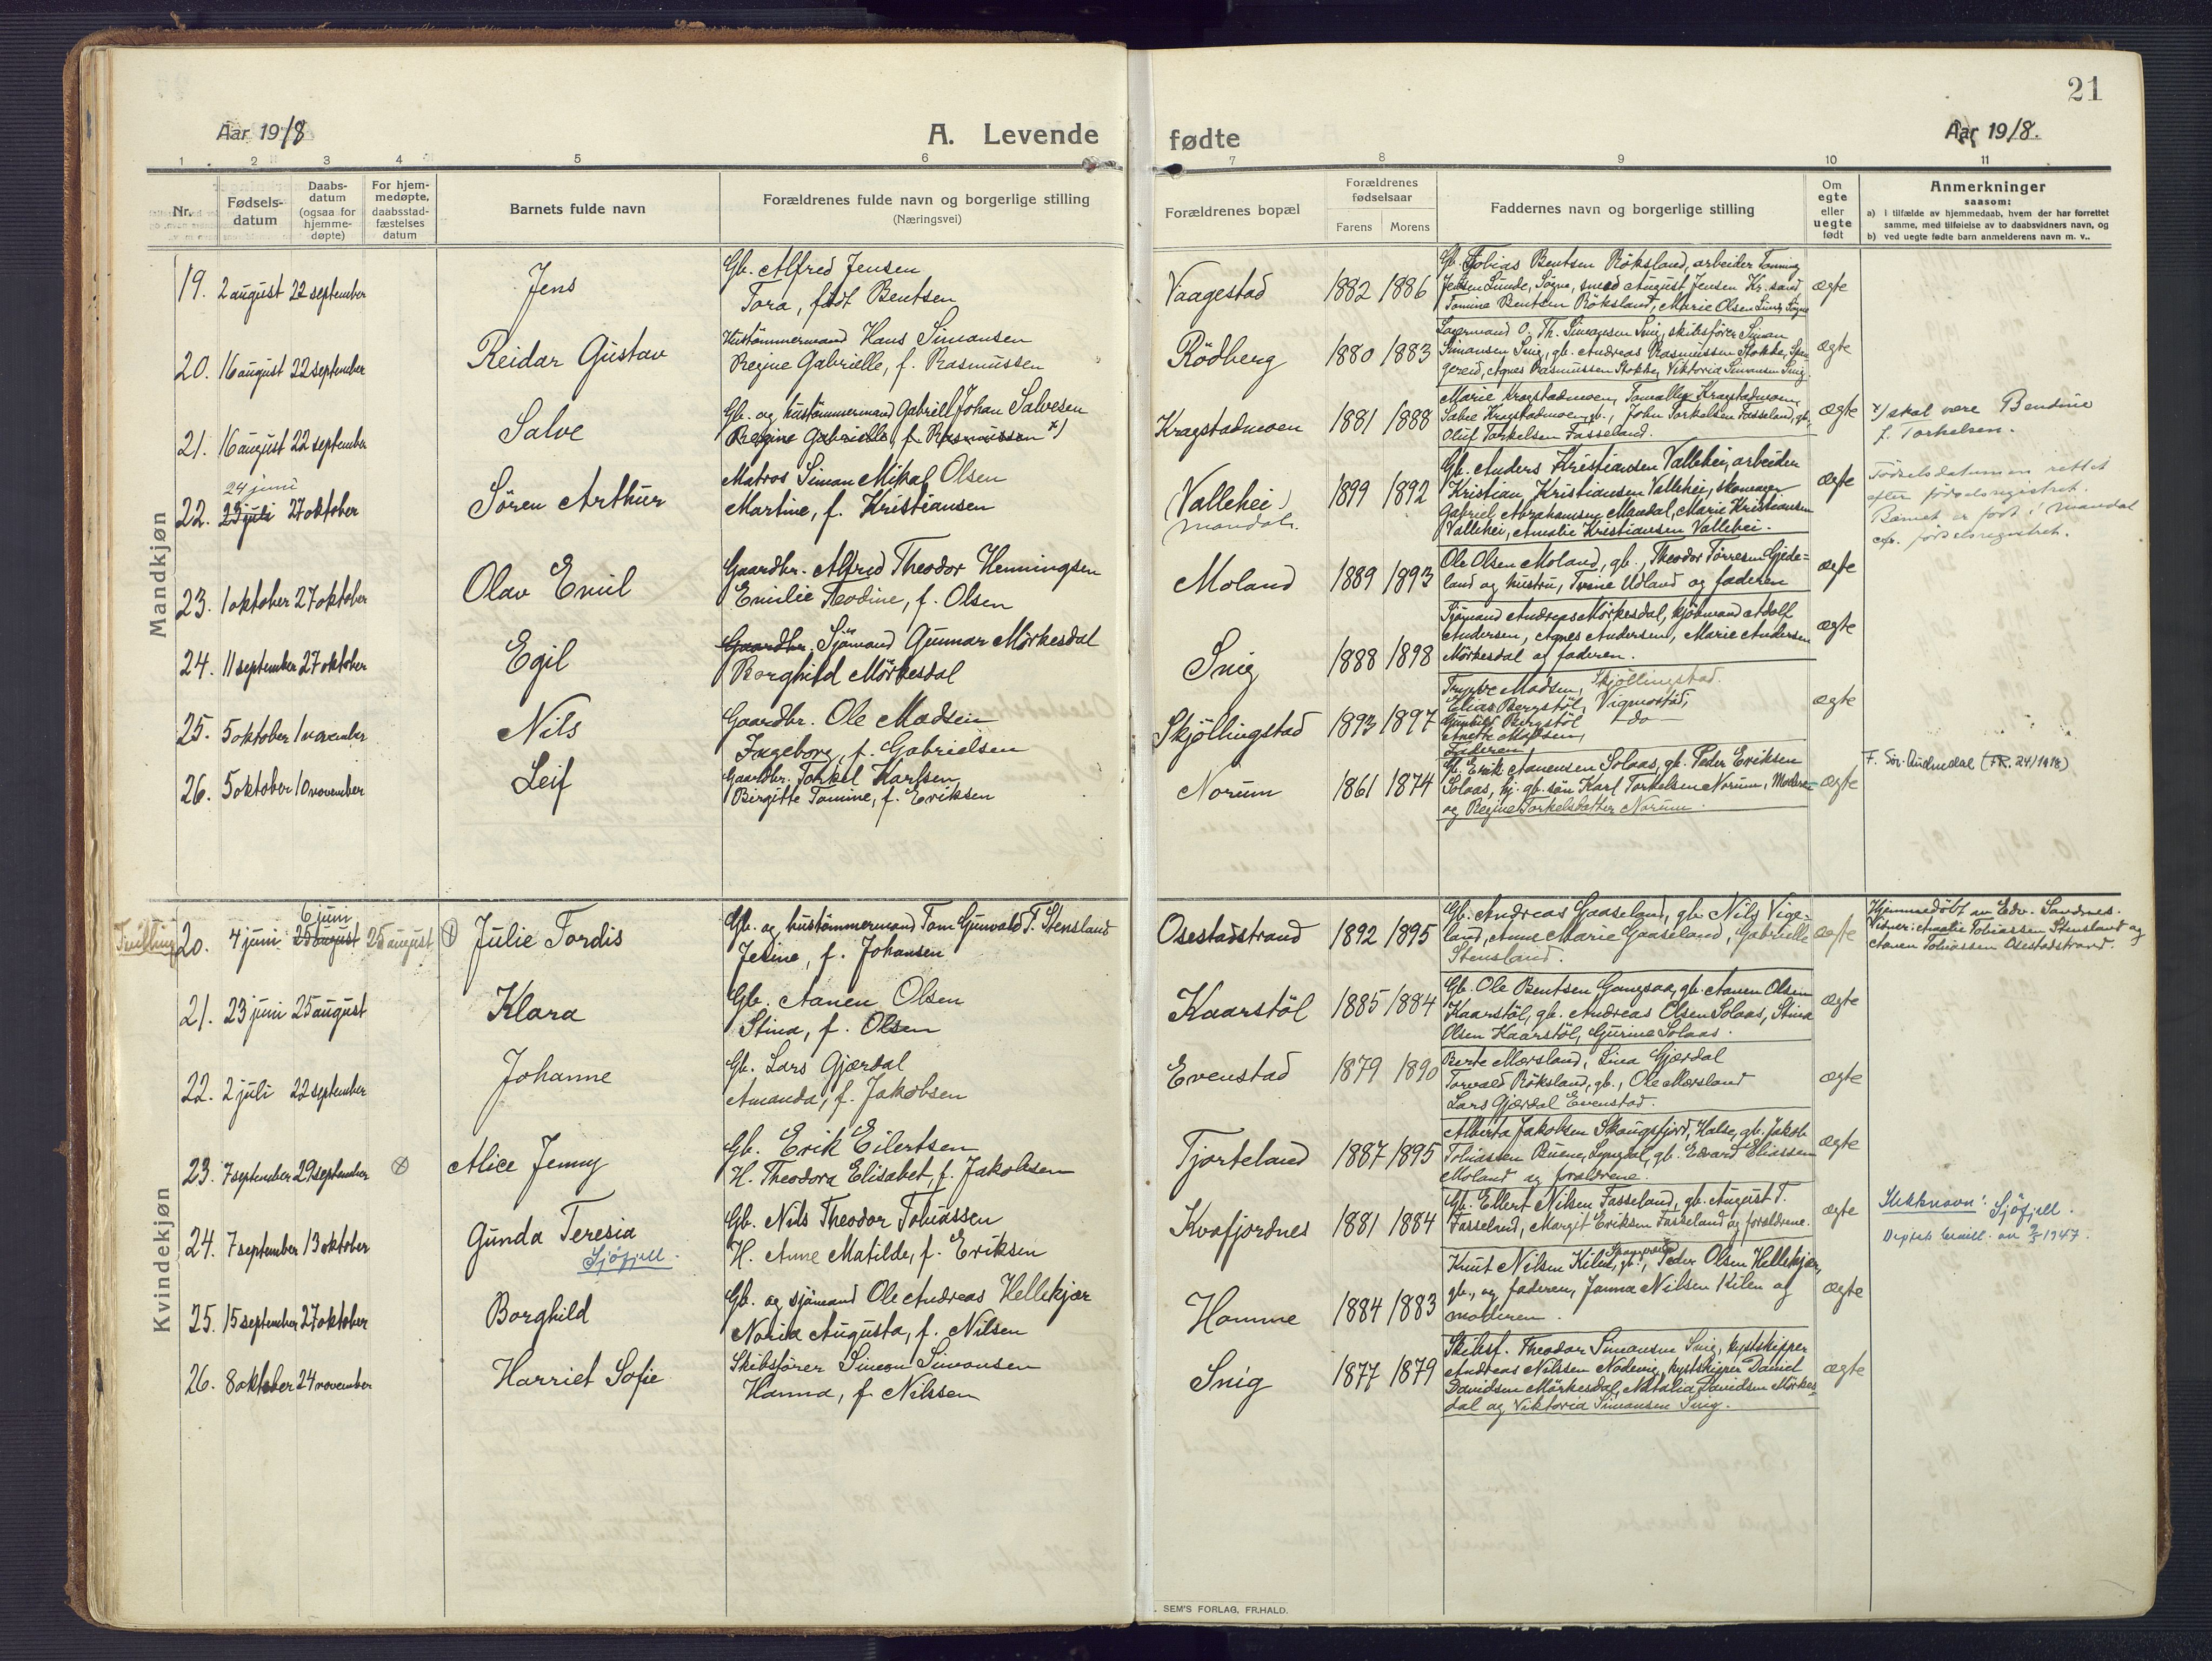 21
Aar 1918
A. Levende
fødte
Aar 1918.
1 2 3 4 5 6 7 8 9 10 11
Nr.
Fødsels-
datum
Daabs-
datum
(ogsaa for
hjemme-
døpte)
For hjem-
medøpte,
daabsstad-
fæstelses
datum
Barnets fulde navn
Forældrenes fulde navn og borgerlige stilling
(Næringsvei)
Forældrenes bopæl
Forældrenes
fødselsaar
Farens Morens
Faddernes navn og borgerlige stilling
Om
egte
eller
uegte
født
Anmerkninger
saasom:
a) i tilfælde av hjemmedaab, hvem der har forrettet
samme, med tilføielse av to daabsvidners navn, og
b) ved uegte fødte barn anmelderens navn m. v..
Mandkjøn
19. 2 august 22 september
Jens
Gb. Alfred Jensen
Tora, født Bentsen
Vaagestad
1882 1886
Gb. Tobias Bentsen Röksland, arbeider Tønning
Jensen Lunde, Søgne, smed August Jensen Kr.sand
Tomine Bentsen Röksland, Marie Olsen Lunde Søgne
ægte
20. 16 august 22 september
Reidar Gustav
Hustömmermand Hans Simonsen
Regine Gabrielle, f. Rasmussen
Rödberg
1880 1883
O. Th. Simonsen Snig, skibsfører Simon
Simonsen Snig, gb. Andreas Rasmussen Stokke, Span-
gereid, Agnes Rasmussen Stokke, Viktoria Simonsen Snig.
ægte
21. 16 august 22 september
Salve
Gb. og hustömmermand Gabriel Johan Salvesen
Regine Gabrielle, f. Rasmussen x)
Kragstadmoen
1881 1888
Marie Kragstadmoen, Kragstadmoen
Salve Kragstadmoen, gb., John Torkelsen Fasseland, gb.,
Oluf Torkelsen Fasseland.
ægte
x) skal være Bendine
f. Torkelsen.
22. 24 juni
23 juli 27 oktober
Søren Arthur
Matros Simon Mikal Olsen
Martine, f. Kristiansen
(Vallehei)
Mandal.
1899 1892
Gb. Anders Kristiansen Vallehei, arbeider
Kristian Kristiansen Vallehei, skomager
Gabriel Abrahamsen Mandal, Marie Kristiansen
Vallehei, Amalie Kristiansen Vallehei.
ægte
Fødselsdatumen rettet
efter fødselsregistret.
Barnet er født i Mandal
cfr. fødselsregistret.
23. 1 oktober 27 oktober
Olav Emil
Gaardbr. Alfred Theodor Henningsen
Emilie Teodine, f. Olsen
Moland
1889 1893
Ole Olsen Moland, gb., Theodor Tørresen Gjede-
land og hustru, Trine Udland og faderen
ægte
24. 11 september 27 oktober
Egil
Gaardbr. Sjömand Gunnar Mörkesdal
Borghild Mörkesdal
Snig
1888 1898
Sjömand Andreas Mörkesdal, kjöbmand Adolf
Andersen, Agnes Andersen, Marie Andersen
Mörkesdal og faderen.
ægte
25. 5 oktober 1 november
Nils
Gaardbr. Ole Madsen
Ingeborg, f. Gabrielsen
Skjöllingstad
1893 1897
Trygve Madsen, Skjöllingstad.
Elias Bergstöl, Vigmostad,
Gunhild Bergstöl - do -
Anette Madsen,
Faderen
ægte
26. 5 oktober 10 november
Leif
Gaardbr. Torkel Karlsen
Birgitte Tomine, f. Eriksen
Norum
1861 1874
Gb. Erik Aanensen Solaas, gb. Peder Eriksen
Solaas, hj. gb. søn Karl Torkelsen Norum, Moderen
og Regine Torkelsdatter Norum.
ægte
F. Sør-Audnedal (FR. 24/1918)
Kvindekjøn
Tvilling
20. 4 juni 6 juni
25 august 25 august
Julie Tordis
Gb. og hustömmermand Tom Gunvald T. Stensland
Jesine, f. Johansen
Osestadstrand
1892 1895
Gb. Andreas Gaaseland, gb. Nils Vige-
land, Anne Marie Gaaseland, Gabrielle
Stensland.
ægte
Hjemmedøbt av Edv. Sandnes.
Vidner: Amalie Tobiassen Stensland og
Aanen Tobiassen Osestadstrand.
21. 23 juni 25 august
Klara
Gb. Aanen Olsen
Stina, f. Olsen
Kaarstöl
1885 1884
Gb. Ole Bentsen Gangsaa, gb. Aanen Olsen
Kaarstöl, gb. Andreas Olsen Solaas, Stina
Olsen Kaarstöl, Gurine Solaas.
ægte
22. 2 juli 22 september
Johanne
Gb. Lars Gjærdal
Amanda, f. Jakobsen
Evenstad
1879 1890
Berte Mærsland, Lina Gjærdal
Torvald Röksland, gb., Ole Mærsland
Lars Gjærdal Evenstad.
ægte
23. 7 september 29 september
Alice Jenny
Gb. Erik Eilertsen
H. Theodora Elisabet, f. Jakobsen
Tjorteland
1887 1895
Alberta Jakobsen Skougsfjord, Halse, gb. Jakob
Tobiassen Buene, Lyngdal, gb. Edvard Eliassen
Moland og forældrene.
ægte
24. 7 september 13 oktober
Gunda Teresia
Sjöfjell.
Gb. Nils Theodor Tobiassen
H. Anne Matilde, f. Eriksen
Kvafjordnes
1881 1884
Gb. Ellert Nilsen Fasseland, gb. August T.
Fasseland, Margit Eriksen Fasseland og forældrene.
ægte
Slektnavn: Sjöfjell.
1947.
25. 15 september 27 oktober
Borghild
Gb. og sjömand Ole Andreas Hellekjær
Noria Augusta, f. Nilsen
Homme
1884 1883
Knut Nilsen Kilen, gb., Spangereid Peder Olsen Hellekjær,
gb., og faderen, Janna Nilsen Kilen og
moderen.
ægte
26. 8 oktober 24 november
Harriet Sofie
Skibsfører Simon Simonsen
Hanna, f. Nilssen
Snig
1877 1879
Skibsf. Theodor Simonsen Snig, kystskipper
Andreas Nilssen Nodevig, kystskipper Daniel
Davidsen Mörkesdal, Natalia Davidsen Mörkes-
dal og Viktoria Simonsen Snig.
ægte
SEM'S FORLAG, FR.HALD.